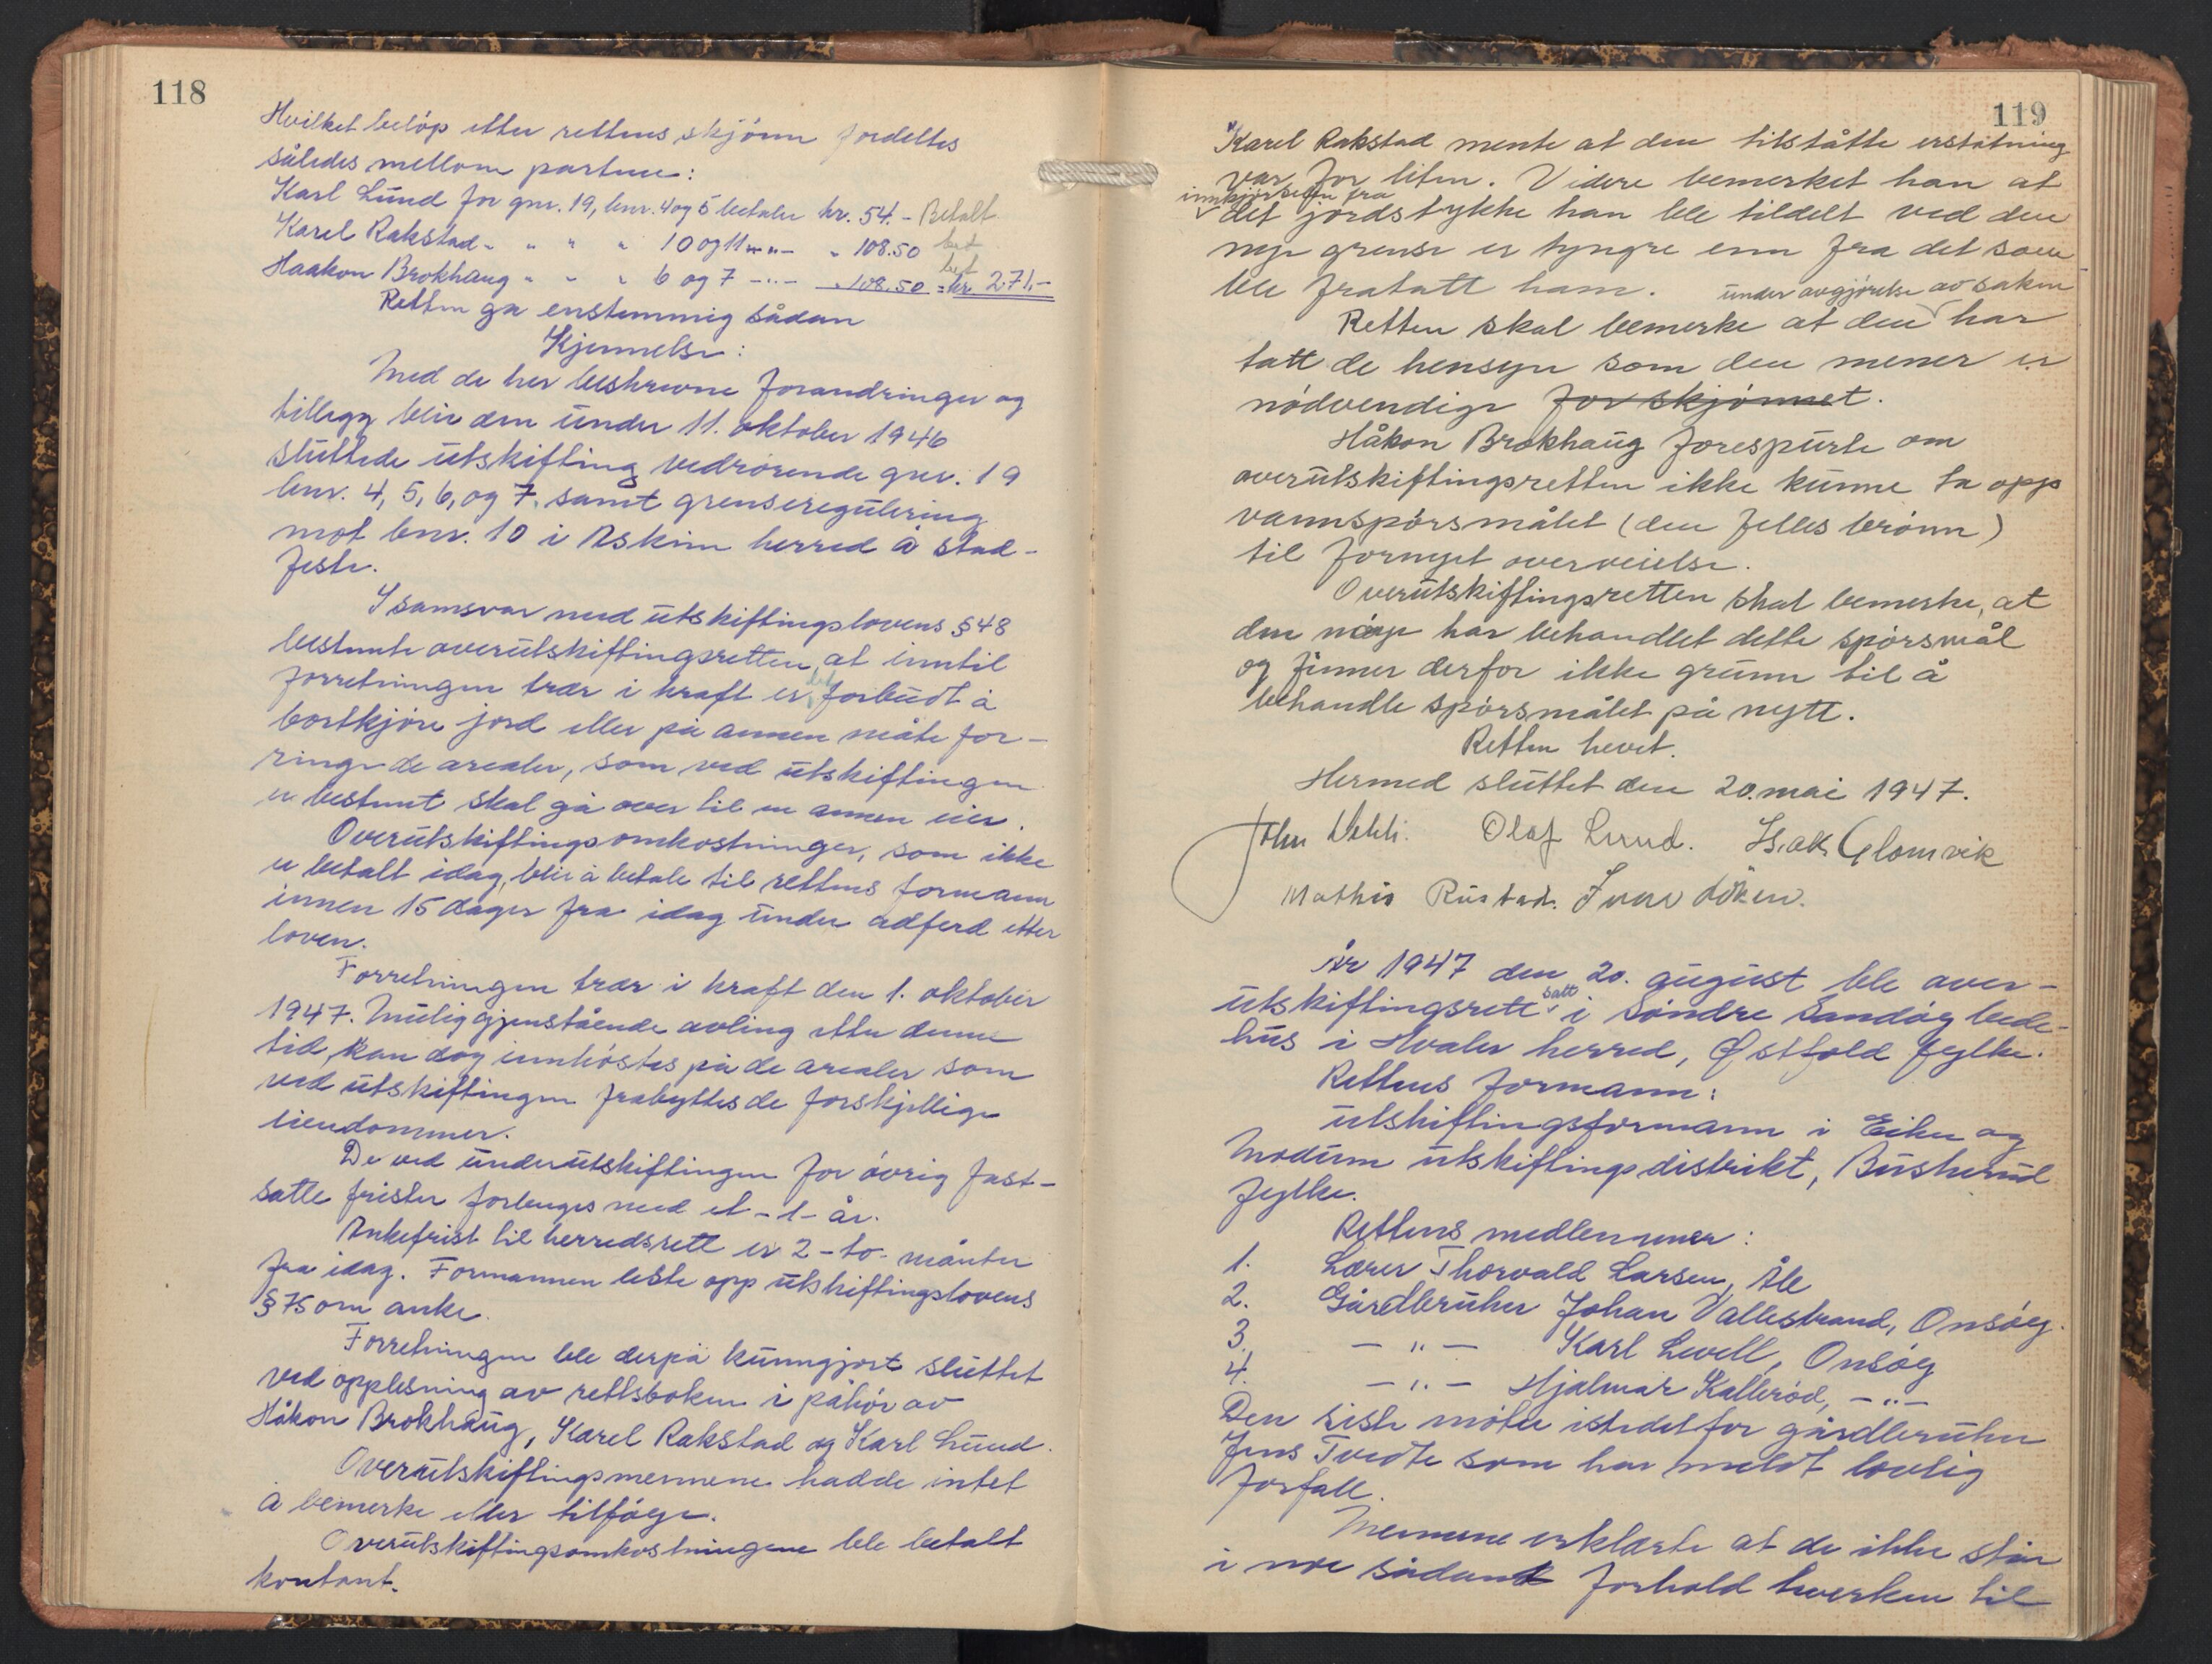 118
Hvilket beløp etter rettens skjønn fordeltes
således mellom partene:
Karl Lund for gnr. 19, bnr. 4 og 5 betaler kr. 54.- Betalt
Karel Rakstad - " " " 10 og 11 -"- " 108.50 bet
Haakon Brokhaug - " " " 6 og 7 -"- " 108.50 = kr. 271,- bet
Retten ga enstemmig sådan
Kjennelse:
Med de her beskrevne forandringer og
tillegg blir den under 11. oktober 1946
sluttede utskifting vedrørende gnr. 19
bnr. 4, 5, 6, og 7, samt grenseregulering
mot bnr. 10 i Askim herred å stad-
feste.
I samsvar med utskiftingslovens § 48
bestemte overutskiftingsretten, at inntil
forretningen trær i kraft er det forbudt å
bortkjøre jord eller på annen måte for-
ringe de arealer, som ved utskiftingen
er bestemt skal gå over til en annen eier.
Overutskiftingsomkostninger, som ikke
er betalt idag, blir å betale til rettens formann
innen 15 dager fra idag under adferd etter
loven.
Forretningen trær i kraft den 1. oktober
1947. Mulig gjenstående avling etter denne
tid, kan dog innhøstes på de arealer som
ved utskiftingen frabyttes de forskjellige
eiendommer.
De ved underutskiftingen for øvrig fast-
satte frister forlenges med et -1- år.
Ankefrist til herredsrett er 2 -to- måneter
fra idag. Formannen leste opp utskiftingslovens
§ 75 om anke.
Forretningen ble derpå kunngjort sluttet
ved opplesning av rettsboken i påhør av
Håkon Brokhaug, Karel Rakstad og Karl Lund.
Overutskiftingsmennene hadde intet
å bemerke eller tilføye.
Overutskiftingsomkostningene ble betalt
kontant.
119
Karel Rakstad mente at den tilståtte erstatning
var for liten. Videre bemerket han at
innkjørselen fra
det jordstykke han ble tildelt ved den
nye grense er tyngre enn fra det som
ble fratatt ham. under avgjørelse av saken
Retten skal bemerke at den har
tatt de hensyn som den mener er
nødvendige for skjønnet.
Håkon Brokhaug forespurte om
overutskiftingsretten ikke kunne ta opp
vannspørsmålet (den felles brønn)
til fornyet overveielse.
Overutskiftingsretten skal bemerke, at
den nøye har behandlet dette spørsmål
og finner derfor ikke grunn til å
behandle spørsmålet på nytt.
Retten hevet.
Hermed sluttet den 20. mai 1947.
John Olaf Lund. Isak Glomvik
Mathis Rustad. Iver Løken.
År 1947 den 20. august ble over-
utskiftingsrett satt i Søndre Sandøy bede-
hus i Hvaler herred, Østfold fylke.
Rettens formann:
utskiftingsformann i Eiker og
Modum utskiftingsdistrikt, Buskerud
fylke.
Rettens medlemmer:
1. Lærer Thorvald Larsen, Åle
2. Gårdbruker Johan Vallestrand, Onsøy.
3. -"- Karl Levell, Onsøy
4. -"- Hjalmar Kallerød, -"-
Den siste møter istedetfor gårdbruker
Jens Tvedte som har meldt lovlig
forfall.
Mennene erklærte at de ikke står
i noe sådant forhold hverken til